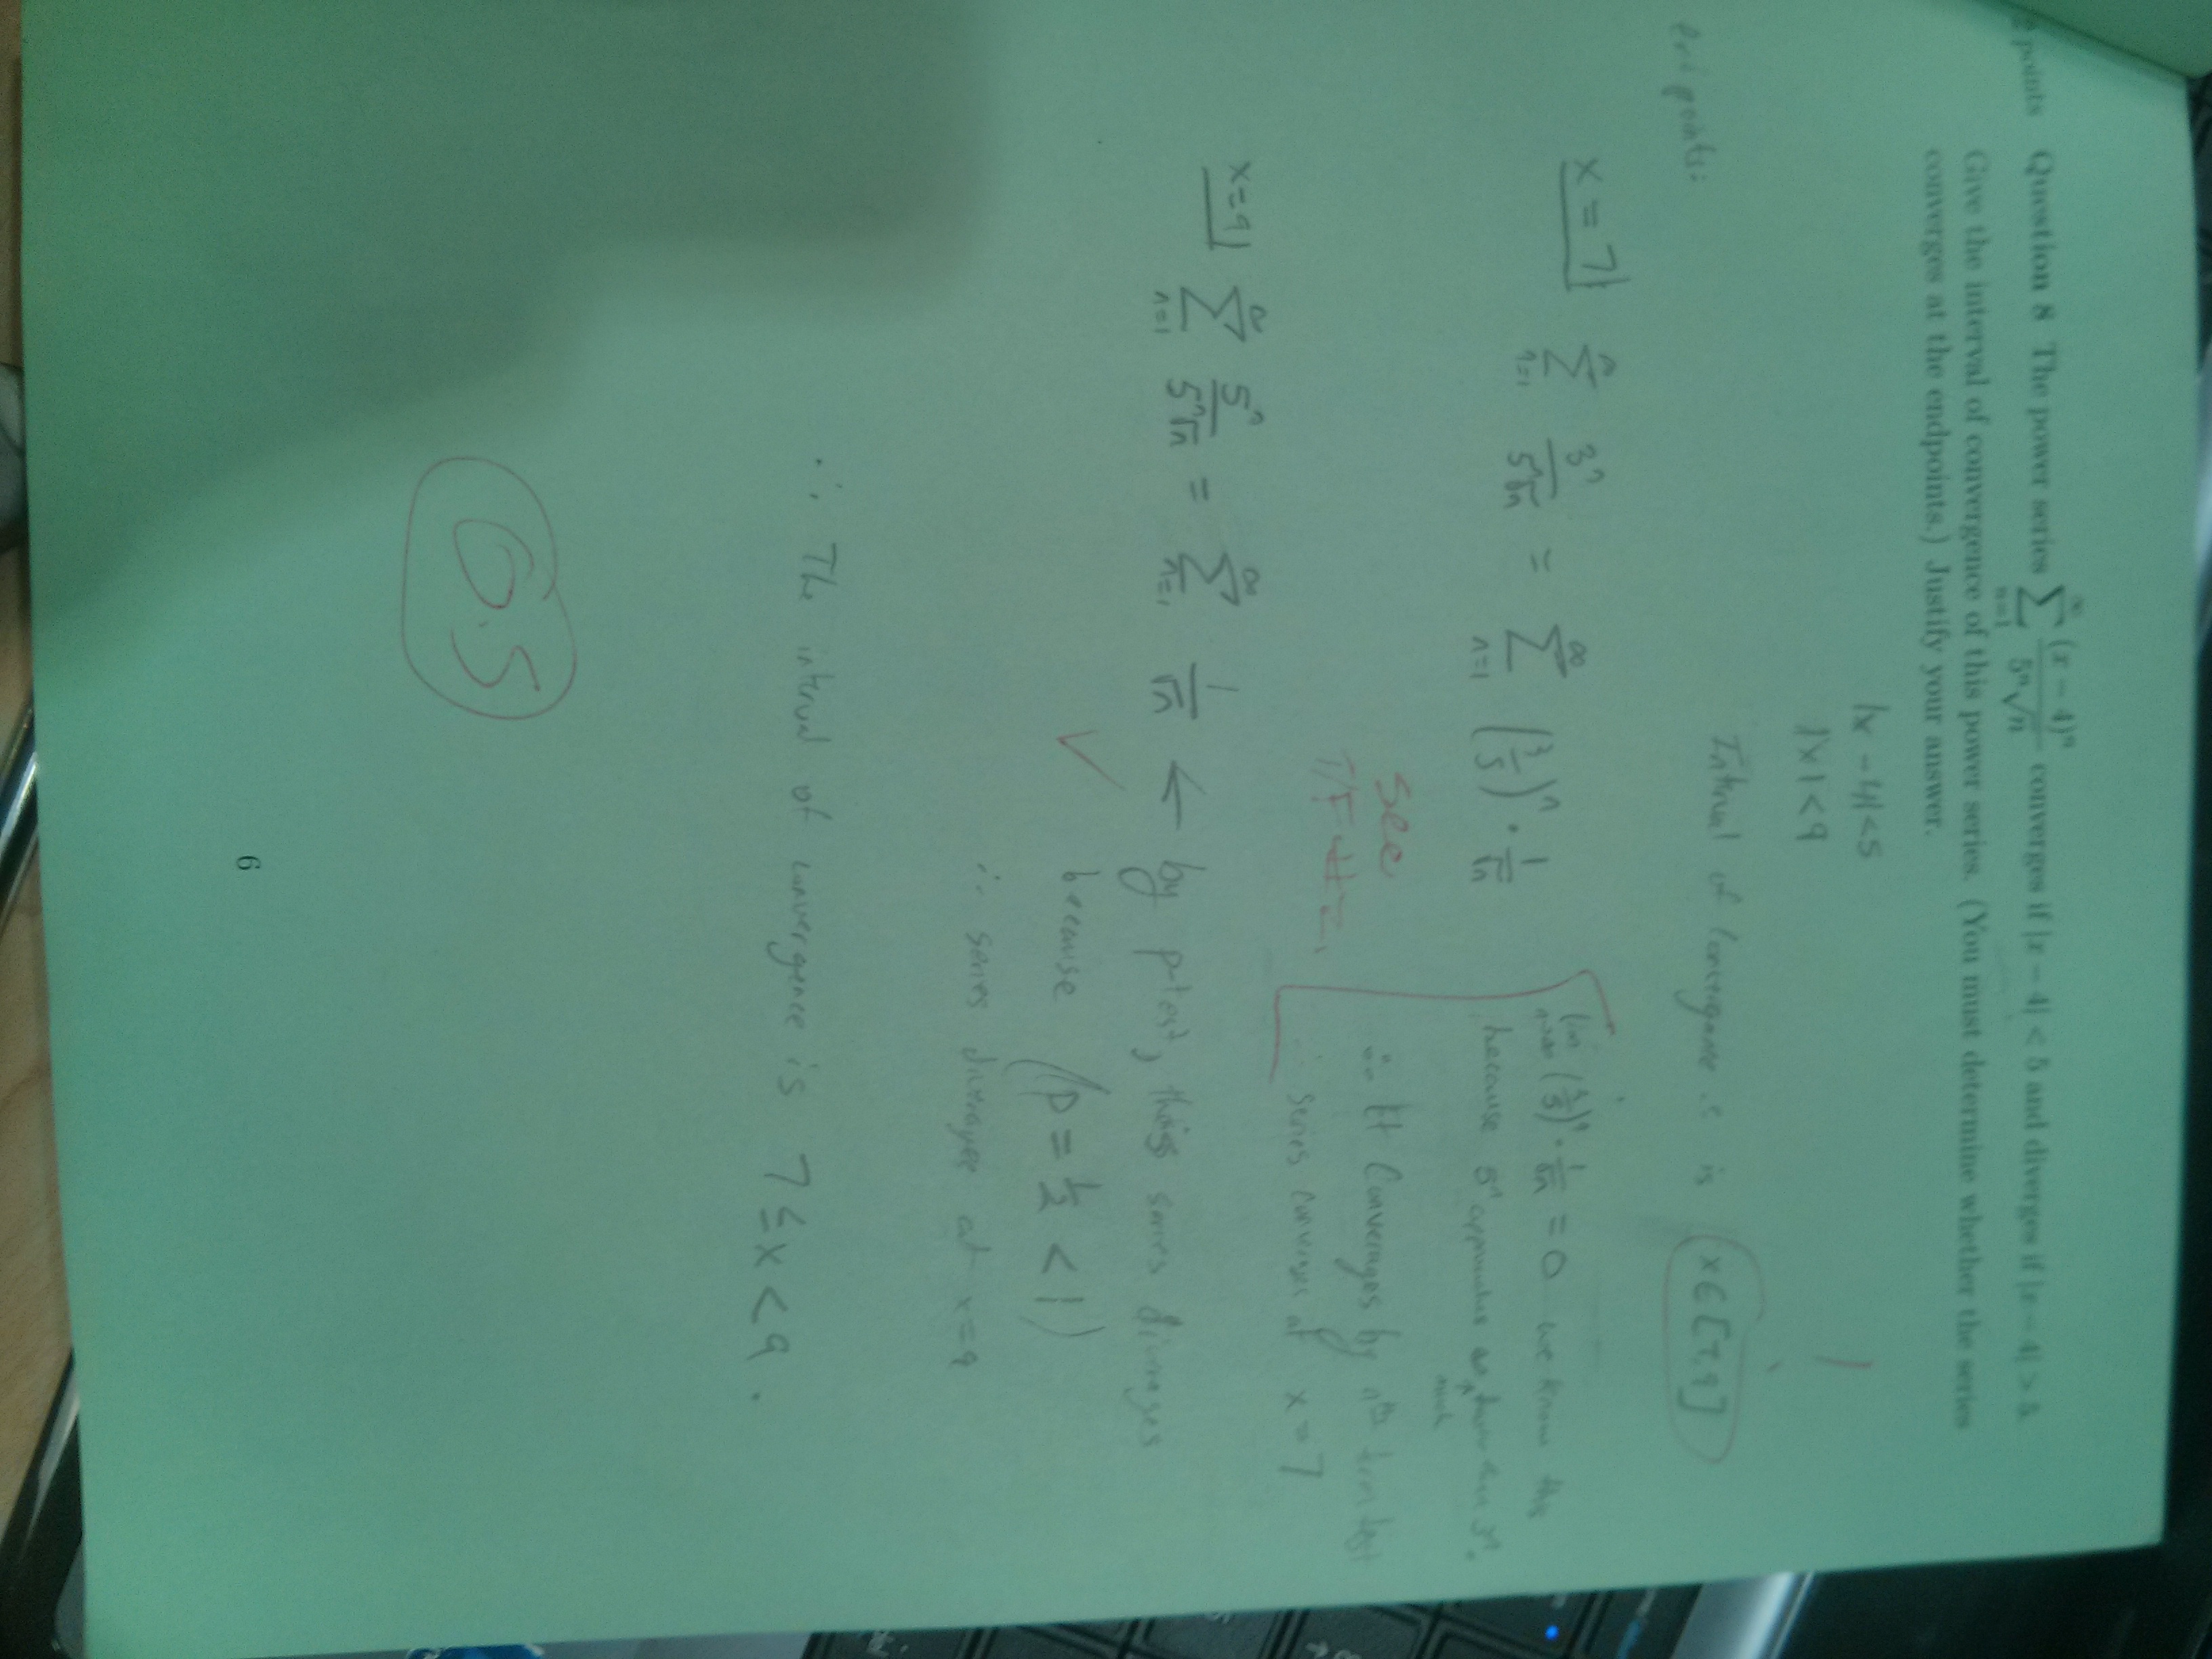 2 points Question 8 The power series \sum_{n=1}^{\infty} \frac{(x-4)^n}{5^n\sqrt{n}} converges if |x − 4| < 5 and diverges if |x − 4| > 5.
Give the interval of convergence of this power series. (You must determine whether the series
converges at the endpoints.) Justify your answer.
|x − 4| < 5
|x| < 9
Interval of is x ∈ [7, 9]
end points:
x = 7 \sum_{n=1}^{\infty} \frac{3^n}{5^n\sqrt{n}} = \sum_{n=1}^{\infty} (\frac{3}{5})^n · \frac{1}{\sqrt{n}}
\lim_{n→∞} (\frac{3}{5})^n · \frac{1}{\sqrt{n}} = 0 we know this
because 5^n approaches ∞ much than 3^n.
∴ it converges by nth term test
∴ series converges at x = 7
See
T/F #2
x = 9 \sum_{n=1}^{\infty} \frac{5^n}{5^n\sqrt{n}} = \sum_{n=1}^{\infty} \frac{1}{\sqrt{n}} ← by p-test, this series diverges
because (p = \frac{1}{2} < 1)
∴ series diverges at x = 9
∴ The interval of convergence is 7 ≤ x < 9.
0.5
6